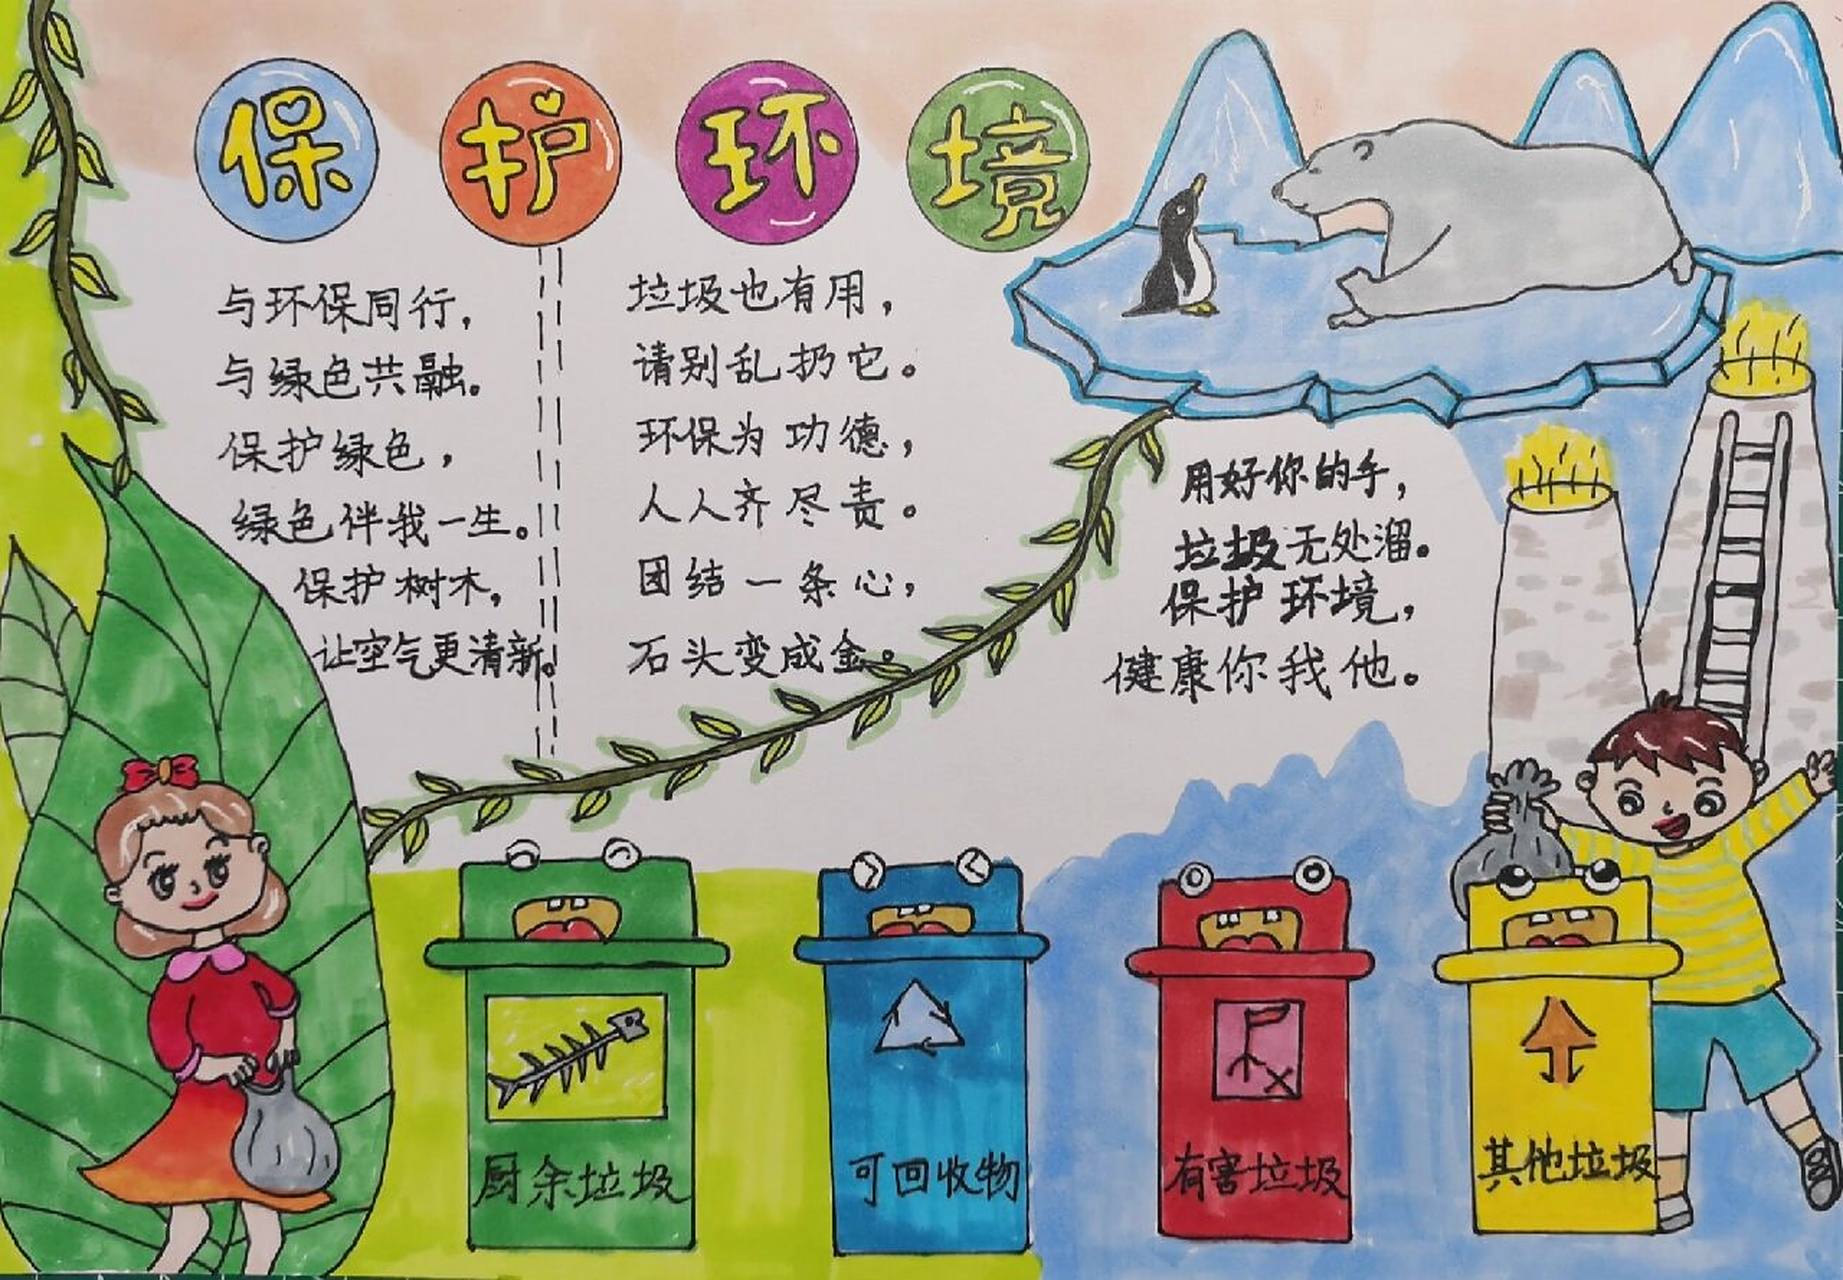 保护环境
与环保同行，
与绿色共融。
保护绿色，
绿色伴我一生。
保护树木，
让空气更清新。
垃圾也有用，
请别乱扔它。
环保为功德，
人人齐尽责。
团结一条心，
石头变成金。
用好你的手，
垃圾无处溜。
保护环境，
健康你我他。
厨余垃圾
可回收物
有害垃圾
其他垃圾